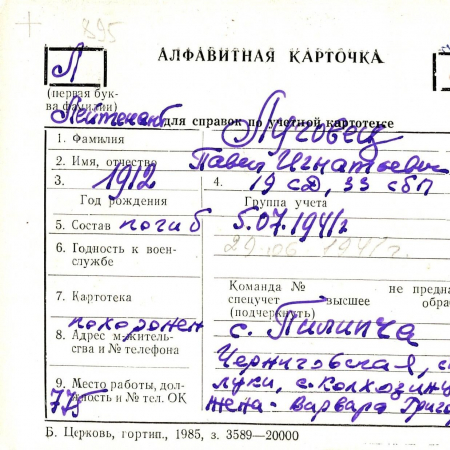 895
АЛФАВИТНАЯ КАРТОЧКА
Л
(первая бук-
ва фамилии)
Лейтенант
для справок по учетной картотеке
1. Фамилия Луговец
2. Имя, отчество Павел Игнатьевич
3. 1912 4. 19 сд, 33 сбп
Год рождения Группа учета
5. Состав погиб 5.07.1941г
6. Годность к воен- 29.06 1941г.
службе
Команда № не предна
7. Картотека спецучет высшее обра
(подчеркнуть)
похоронен с. Пилипча
8. Адрес м. житель-
ства и № телефона
Черниговская, с
9. Место работы, дол- луки, с. Колхозин
жность и № тел. ОК
775 жена - Варвара Григо
Б. Церковь, гортип., 1985, з. 3589—20000